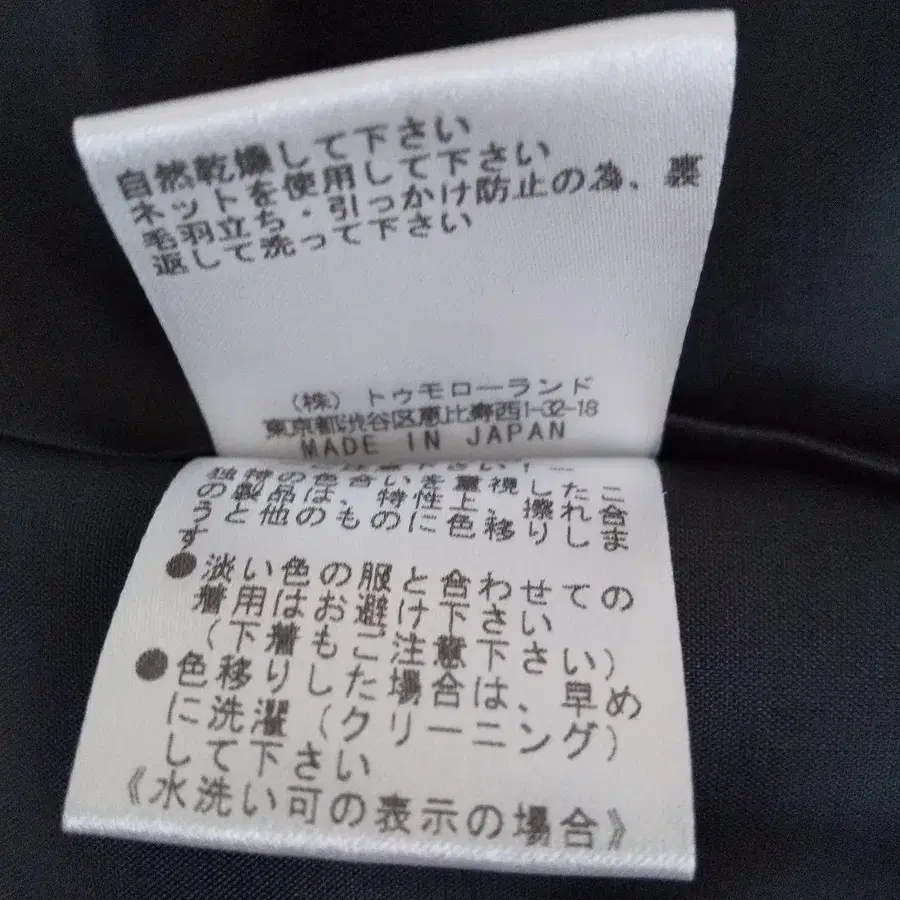 自然乾燥して下さい
ネットを使用して下さい
毛羽立ち・引っかけ防止の為、裏
返して洗って下さい
(株) トゥモローランド
東京都渋谷区恵比寿西1-32-18
MADE IN JAPAN
独特の色合いを重視したこ
の製品は、特性上、擦れ合
うと他のものに色移りしま
す
●淡い色の服と合わせての
着用はお避け下さい
(下着もご注意下さい)
●色移りした場合は、早め
に洗濯(クリーニング)
して下さい
《水洗い可の表示の場合》